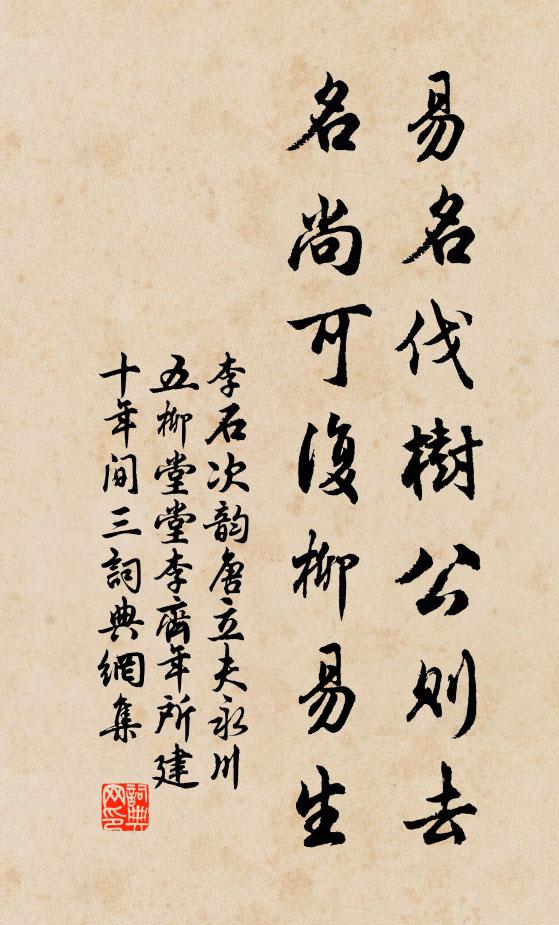 易名伐樹公則去
名尚可復柳易生
李石次韵唐立夫永川
五柳堂堂李齊年所建
十年间三詞典網集
詞典网印